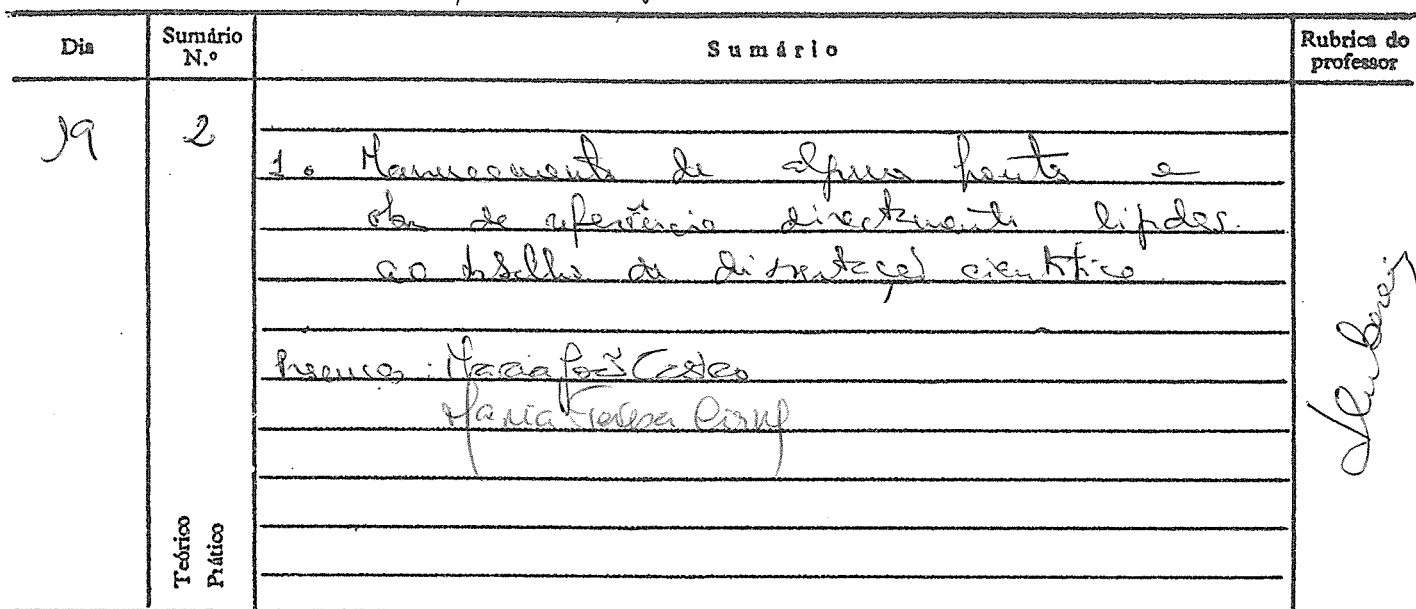 Dia
Sumário N.º
Sumário
Rubrica do professor
19
2
1. Manuseamento de algumas fontes e
obras de referência directamente ligadas
ao trabalho de dissertação científica.
Presenças: Maria João Castro
Maria Teresa
Teórico
Prático